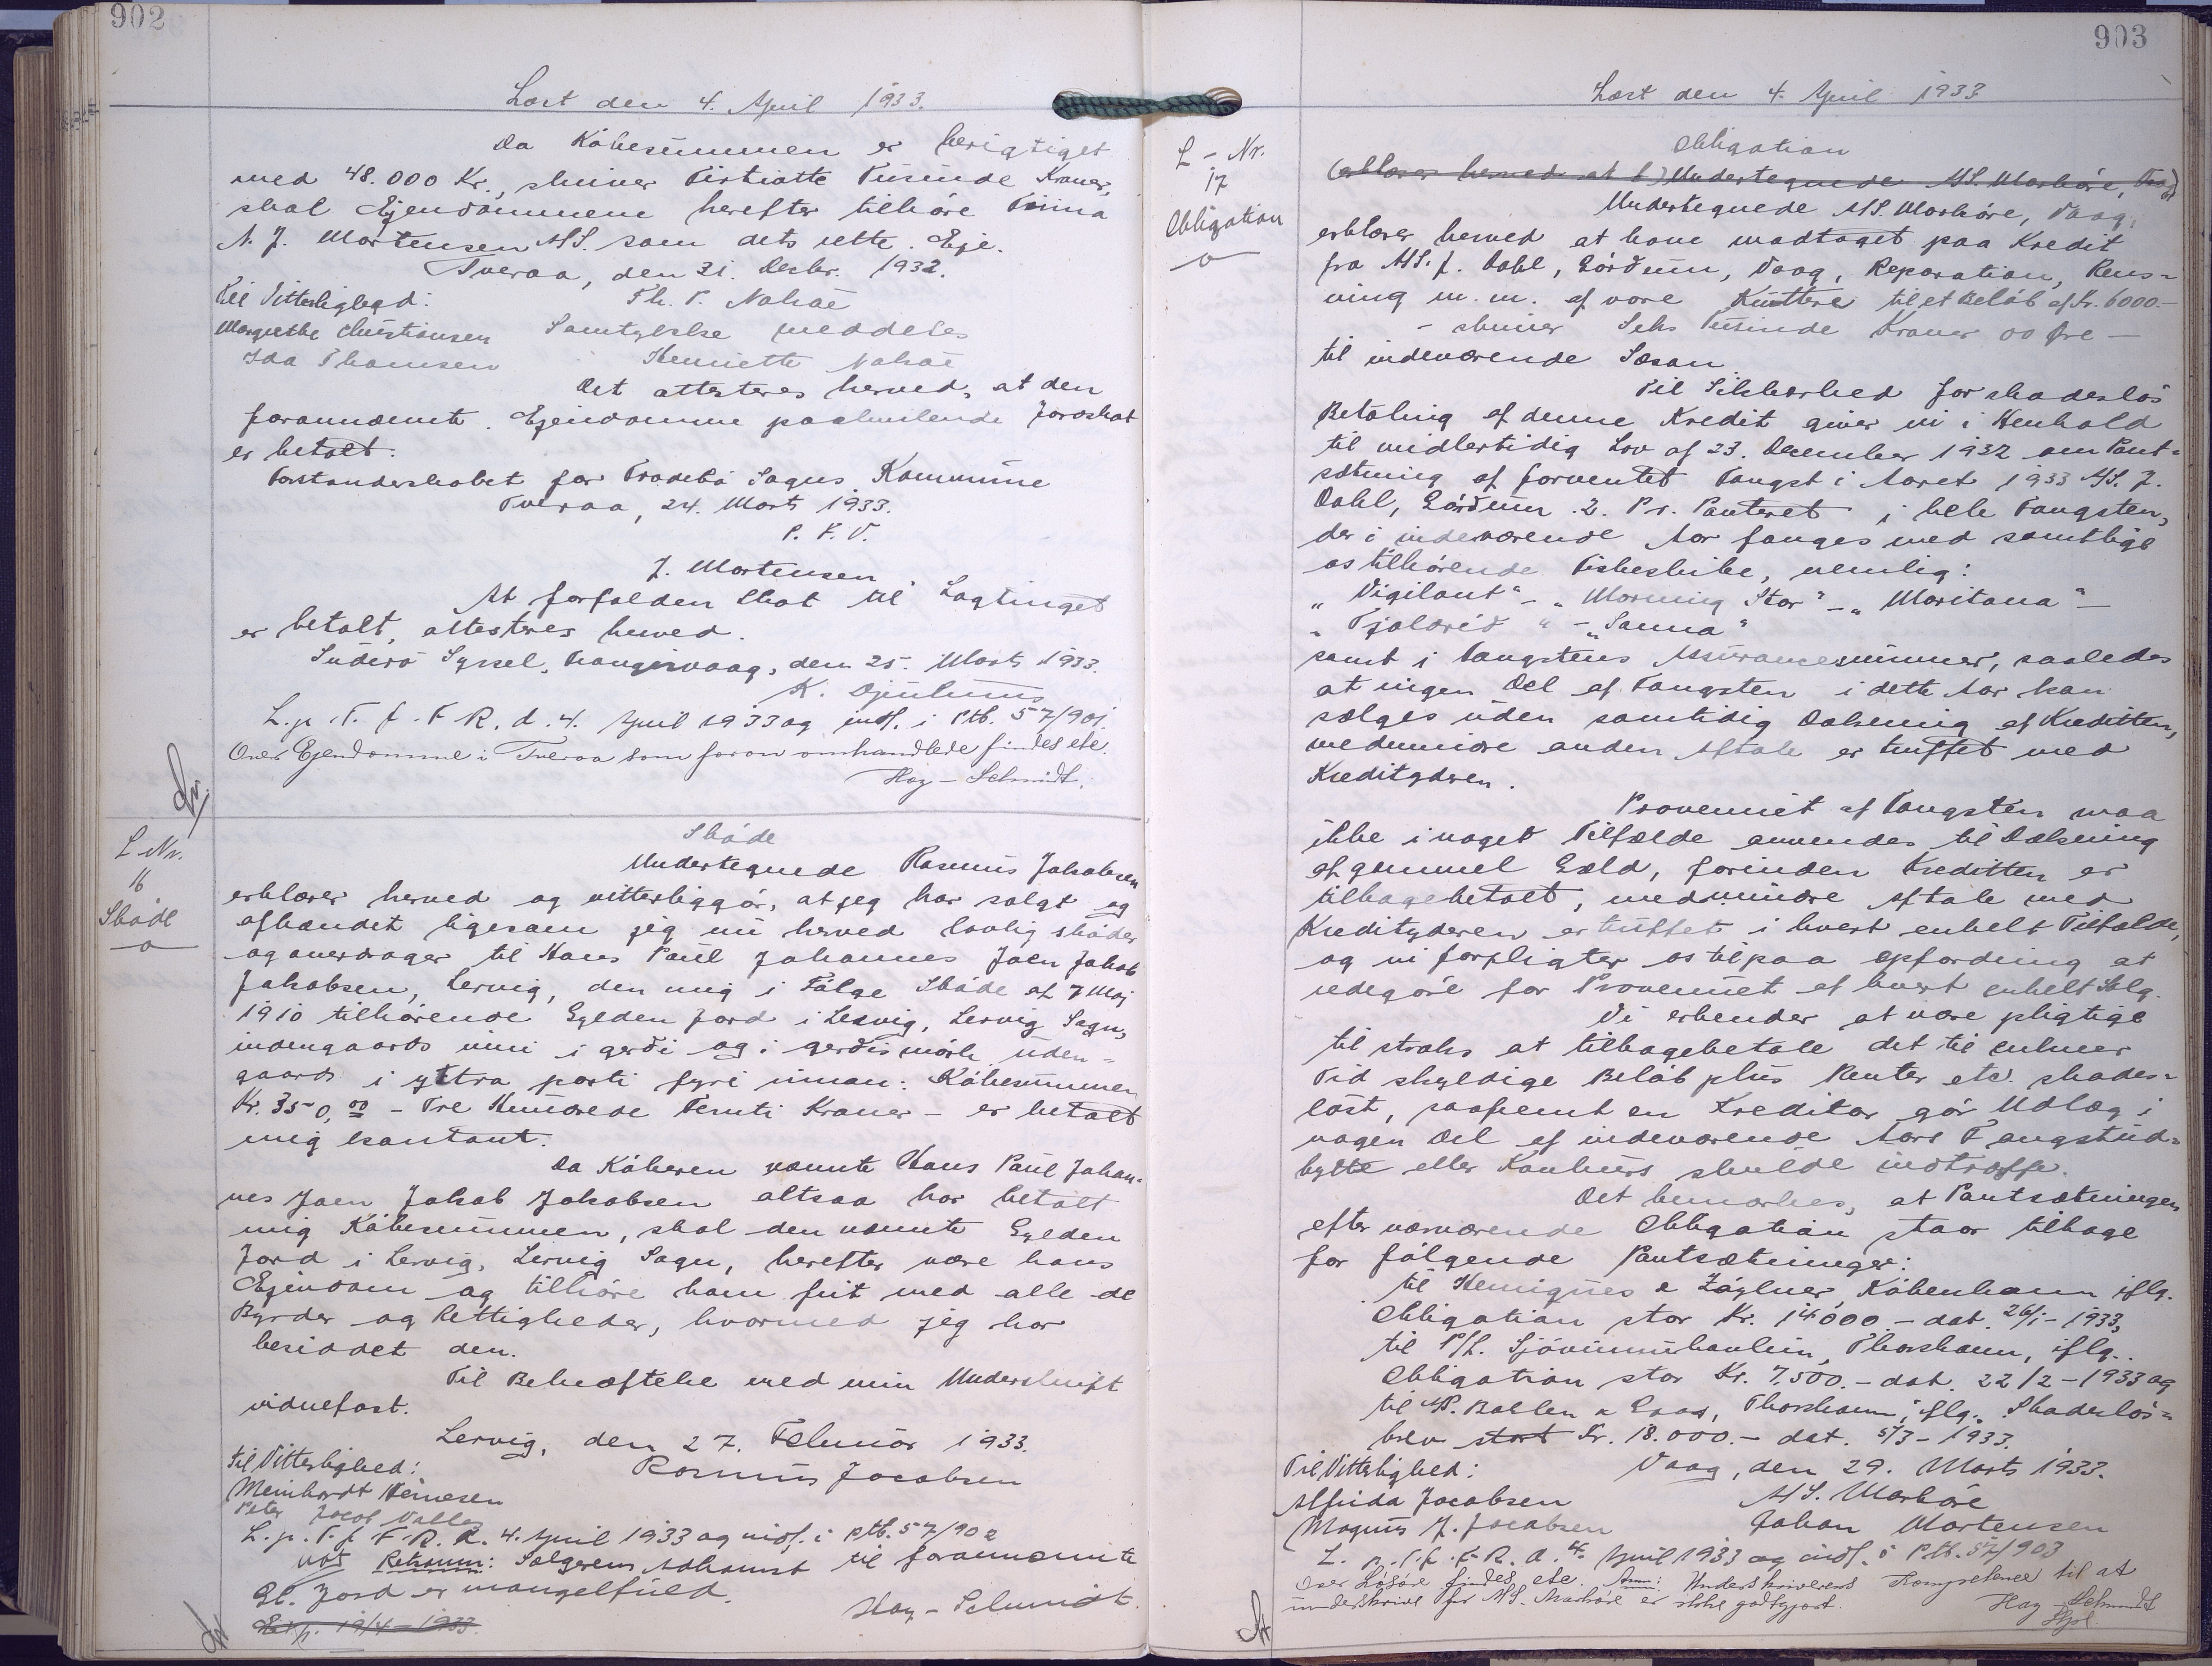 902
Læst den 4. April 1933.
Da Købesummen er berigtiget
med 48.000 Kr., skriver Firtiotte Tusinde Kroner,
skal Ejendommene herefter tilhøre Firma
N. J. Mortensen A/S. som dets rette Eje.
Tveraa, den 31. Decbr. 1932.
Til Vitterlighed: Th. T. Nolsøe
Margrethe Christiansen Samtykke meddeles
Ida Thomsen Henriette Nolsøe
Det attesteres herved, at den
forannævnte Ejendomme paahvilende Jordskat
er betalt.
Forstanderskabet for Frodebø Sogns Kommune
Tveraa, 24. Marts 1933.
P. F. V.
J. Mortensen
At forfalden Skat til Lagtinget
er betalt, attesteres herved.
Suderø Syssel, Trangisvaag, den 25. Marts 1933.
K. Djurhuus
L. p. T. f. F. R. d. 4. April 1933 og indf. i Ptb. 57/901.
Over Ejendomme i Tveraa som foran omhandlede findes etc.
Hoy-Schmidt.
L Nr.
16
Skøde
Skøde
Undertegnede Rasmus Jakobsen
erklærer herved og vitterliggør, at jeg har solgt og
afhændet ligesom jeg nu herved lovlig skøder
og overdrager til Hans Paul Johannes Joen Jakob
Jakobsen, Lervig, den mig i Følge Skøde af 7 Maj
1910 tilhørende Gylden Jord i Lervig, Lervig Sogn,
indengaards inni i gerði og i gerðismørk, uden=
gaards i yttra parti fyri innan: Købesummen
Kr. 350,00 - Tre Hundrede Femti Kroner - er betalt
mig kontant.
Da Køberen nævnte Hans Paul Johan=
nes Joen Jakob Jakobsen altsaa har betalt
mig Købesummen, skal den nævnte Gylden
Jord i Lervig, Lervig Sogn, herefter være hans
Ejendom og tilhøre ham frit med alle de
Byrder og Rettigheder, hvormed jeg har
besiddet den.
Til Bekræftelse med min Underskrift
vidnefast.
Lervig, den 27. Februar 1933.
Til Vitterlighed: Rasmus Jacobsen
Meinhardt Heinesen
Peter Jacob
L. p. T. f. F. R. d. 4. April 1933 og indf. i Ptb. 57/902
not Retsanm: Sælgerens Adkomst til forannævnte
Gl. Jord er mangelfuld.
Hoy-Schmidt.
Exp. 19/4-1933.
903
Læst den 4. April 1933
L - Nr.
17
Obligation
Obligation
(erklærer herved at h) Undertegnede A/S. Marhøre, Vaag
Undertegnede A/S. Marhøre, Vaag,
erklærer herved at have modtaget paa Kredit
fra A/S. J. Dahl, Gørdum, Vaag, Reparation, Rens=
ning m. m. af vore Kuttere til et Beløb af Kr. 6000.-
- skriver Seks Tusinde Kroner 00 Øre -
til indeværende Sæson.
Til Sikkerhed for skadesløs
Betaling af denne Kredit giver vi i Henhold
til midlertidig Lov af 23. December 1932 om Pant=
sætning af forventet Fangst i Aaret 1933 A/S. J.
Dahl, Gørdum 2. Pr. Panteret i hele Fangsten,
der i indeværende Aar fanges med samtlige
os tilhørende Fiskeskibe, nemlig:
"Vigilant" - "Morning Star" - "Maritana" -
"Tjaldrið" - "Sanna"
samt i Fangstens Assurancesummer, saaledes
at ingen Del af Fangsten i dette Aar kan
sælges uden samtidig Dækning af Kreditten,
medmindre anden Aftale er truffet med
Kreditgiveren.
Provenuet af Fangsten maa
ikke i noget Tilfælde anvendes til Dækning
af gammel Gæld, forinden Kreditten er
tilbagebetalt, medmindre Aftale med
Kredityderen er truffet i hvert enkelt Tilfælde,
og vi forpligter os til paa Opfordring at
redegøre for Provenuet af hvert enkelt Salg.
Vi erkender at være pligtige
til straks at tilbagebetale det til enhver
Tid skyldige Beløb plus Renter etc. skades=
løst, saafremt en Kreditor gør Udlæg i
nogen Del af indeværende Aars Fangstud=
bytte eller Konkurs skulde indtræffe.
Det bemærkes, at Pantsætningen
efter nærværende Obligation staar tilbage
for følgende Pantsætninger:
til Henriques & Zøylner, København iflg.
Obligation stor Kr. 14000.- dat. 26/1-1933,
til P/L. Sjóvinnubankin, Thorshavn, iflg.
Obligation stor Kr. 7.500.- dat. 22/2-1933 og
til Thorshavn, iflg. Skadesløs=
brev stort Kr. 18.000.- dat. 5/3-1933.
Til Vitterlighed: Vaag, den 29. Marts 1933.
Alfrida Jacobsen A/S. Marhøre
Magnus J. Jacobsen Johan Mortensen
L. p. T. f. F. R. d. 4. April 1933 og indf. i Ptb. 57/903
Over Løsøre findes etc. Anm: Underskriverens Kompetence til at
underskrive for A/S. Marhøre er ikke godtgjort.
Hoy-Schmidt